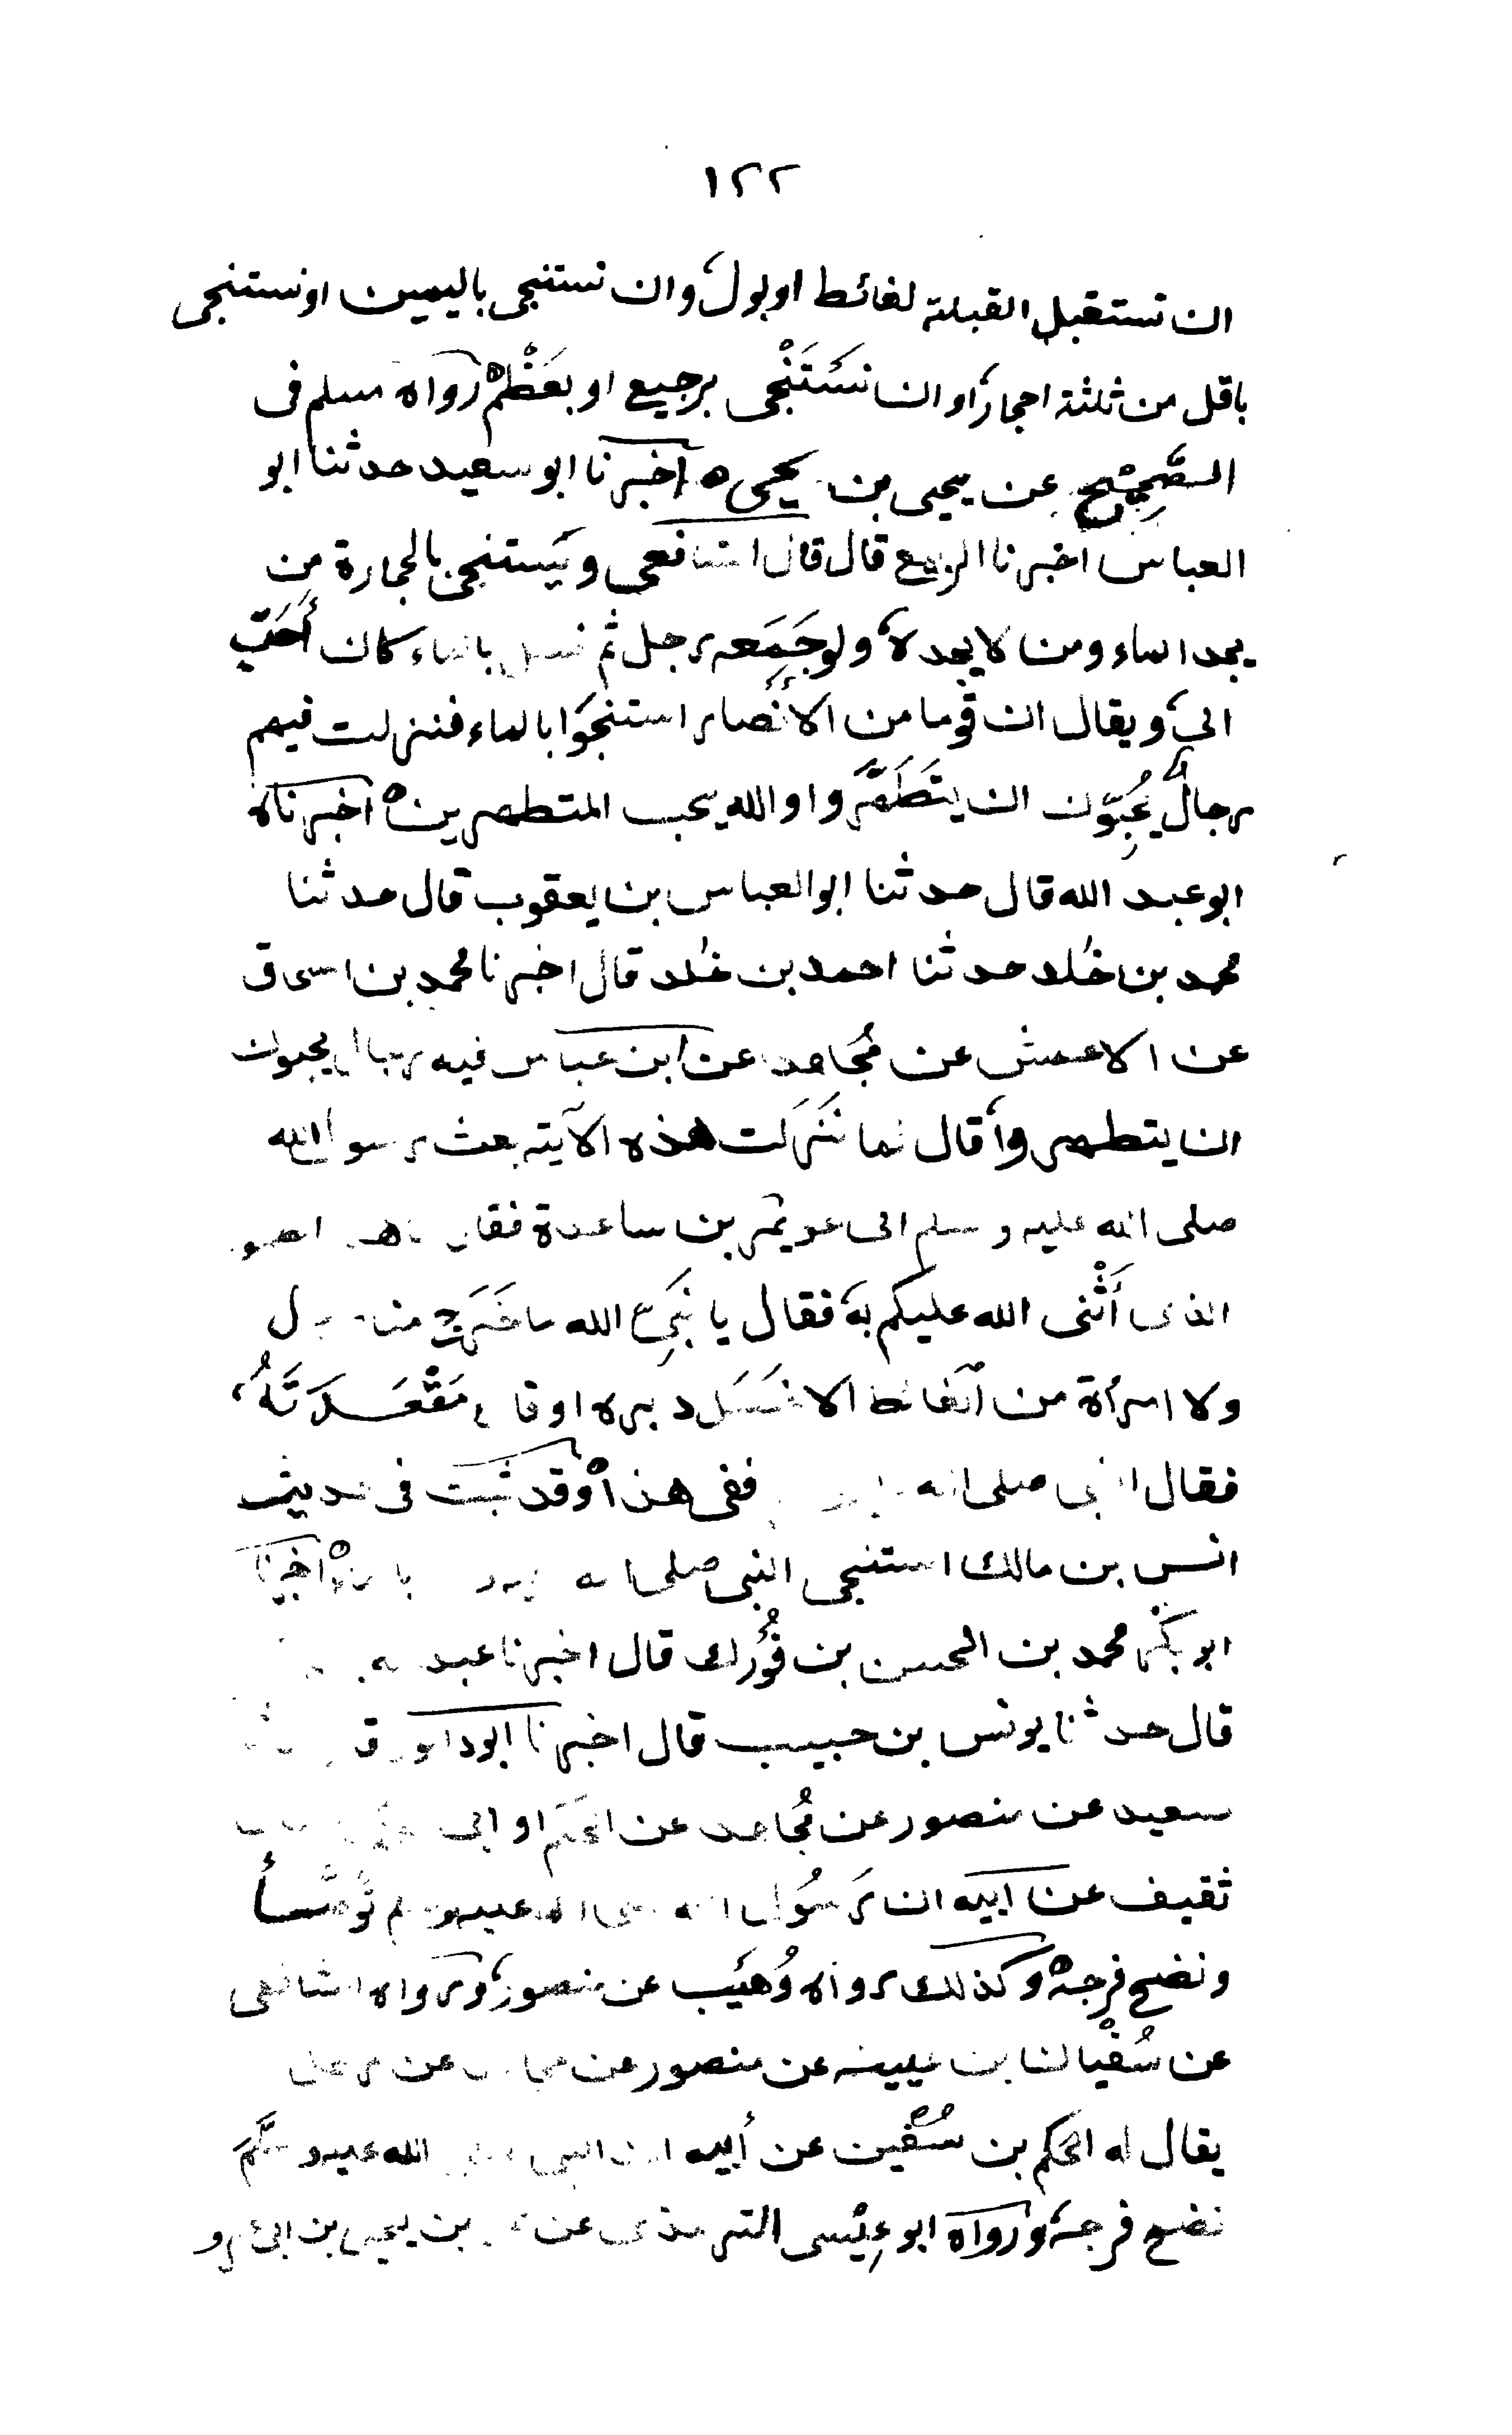 ١٢٢
ان نستقبل القبلة لغائط او بول وان نستنجى باليمين او نستنجى
باقل من ثلثة احجار او ان نَسْتَنْجى برجيع او بعَظْم رواه مسلم فى
الصَّحِيْح عن يحيى بن يحيى ه اخبرنا ابو سعيد حدثنا ابو
العباس اخبرنا الربيع قال قال الشافعى ويستنجى بالحجارة من
يجد الماء ومن لا يجده ولو جَمَعه رجل ثم غسل بالماء كان أَحَبّ
الىّ ويقال ان قوما من الأنْصار استنجَوا بالماء فنزلت فيهم
رجالٌ يُحِبّون ان يتَطَهَّروا والله يحب المتطهرين ه اخبرناه
ابو عبد الله قال حدثنا ابو العباس بن يعقوب قال حدثنا
محمد بن خلد حدثنا احمد بن خلد قال اخبرنا محمد بن اسحاق
عن الاعمش عن مُجاهد عن ابن عباس فيه رجال يحبون
ان يتطهروا قال لما نَزَلت هذه الآية بعث رسول الله
صلى الله عليه وسلم الى عويمر بن ساعدة فقال
الذى أَثْنى الله عليكم به فقال يا نَبِىَّ الله ما خَرَج منا
ولا امرأة من الغائط الا غَسَل دبره او قال مَقْعَدَتَهُ
فقال النبى صلى الله ففى هذا ه وقد ثبت فى حديث
انس بن مالك استنجى النبى صلى الله اخبرنا
ابو بكر محمد بن الحسن بن فُوْرك قال اخبرنا عبد
قال حدثنا يونس بن حبيب قال اخبرنا ابو داود
سعيد عن منصور عن مُجاهد عن الحَكَم او ابى
ثقيف عن ابيه ان رَسُول الله صلى الله عليه وسلم تَوَضَّأ
ونضح فرجه ه وكذلك رواه وُهَيْب عن منصور ورواه الشافعى
عن سُفْيان بن عيينه عن منصور عن مجاهد عن رجل
يقال له الحكم بن سُفْين عن أبيه ان النبى صلى الله عليه وسَلَّمَ
نضح فرجه ورواه ابو عِيْسى الترمذى عن بن يحيى بن ابى